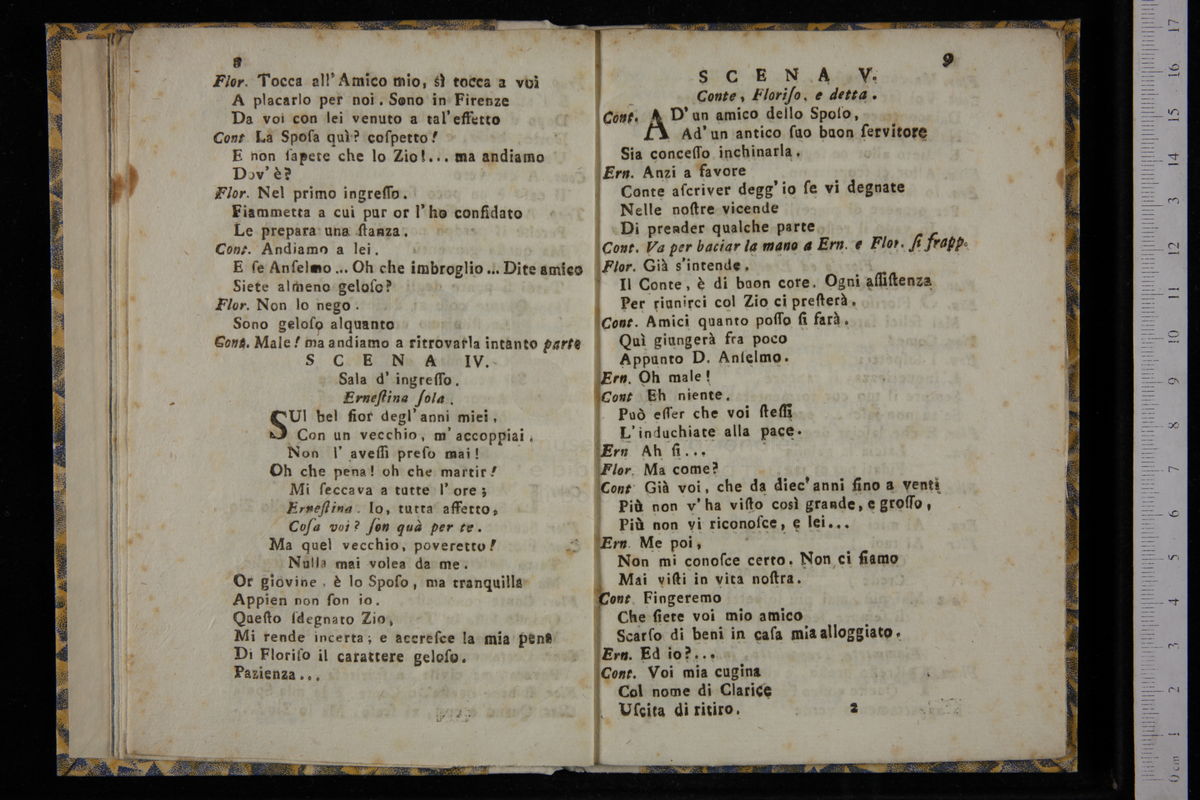 8
Flor. Tocca all' Amico mio, sì tocca a voi
A placarlo per noi. Sono in Firenze
Da voi con lei venuto a tal' effetto
Cont La Sposa quì? cospetto!
E non sapete che lo Zio!... ma andiamo
Dov' è?
Flor. Nel primo ingresso.
Fiammetta a cui pur or l' ho confidato
Le prepara una stanza.
Cont. Andiamo a lei.
E se Anselmo... Oh che imbroglio... Dite amico
Siete almeno geloso?
Flor. Non lo nego.
Sono geloso alquanto
Cont. Male! ma andiamo a ritrovarla intanto parte
SCENA IV.
Sala d' ingresso.
Ernestina sola.
SUl bel fior degl' anni miei,
Con un vecchio, m' accoppiai.
Non l' avessi preso mai!
Oh che pena! oh che martir!
Mi seccava a tutte l' ore;
Ernestina. Io, tutta affetto,
Cosa voi? son quà per te.
Ma quel vecchio, poveretto!
Nulla mai volea da me.
Or giovine, è lo Sposo, ma tranquilla
Appien non son io.
Questo sdegnato Zio,
Mi rende incerta; e accresce la mia pena
Di Floriso il carattere geloso.
Pazienza...
9
SCENA V.
Conte, Floriso, e detta.
Cont. AD' un amico dello Sposo,
Ad' un antico suo buon servitore
Sia concesso inchinarla.
Ern. Anzi a favore
Conte ascriver degg' io se vi degnate
Nelle nostre vicende
Di prender qualche parte
Cont. Va per baciar la mano a Ern. e Flor. si frapp.
Flor. Già s'intende.
Il Conte, è di buon core. Ogni assistenza
Per riunirci col Zio ci presterà.
Cont. Amici quanto posso si farà.
Quì giungerà fra poco
Appunto D. Anselmo.
Ern. Oh male!
Cont Eh niente.
Può esser che voi stessi
L'induchiate alla pace.
Ern Ah si...
Flor. Ma come?
Cont Già voi, che da diec' anni fino a venti
Più non v' ha visto così grande, e grosso,
Più non vi riconosce, e lei...
Ern. Me poi,
Non mi conosce certo. Non ci siamo
Mai visti in vita nostra.
Cont. Fingeremo
Che siete voi mio amico
Scarso di beni in casa mia alloggiato.
Ern. Ed io?...
Cont. Voi mia cugina
Col nome di Clarice
Uscita di ritiro. 2
0 cm 1 2 3 4 5 6 7 8 9 10 11 12 13 14 15 16 17